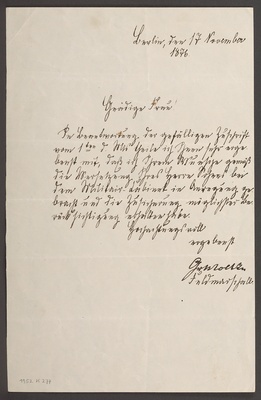 Berlin, den 17 November
1876
Gnädige Frau!
In Beantwortung der gefälligen Zuschrift
vom 1ten d. Mts theile ich Ihnen sehr erge
benst mit, daß ich Ihrem Wunsche gemäß
die Versetzung Ihres Herrn Sohnes bei
dem Militair-Cabinet in Anregung ge
bracht und die Zusicherung möglichster Be
rücksichtigung erhalten habe.
Hochachtungsvoll
ergebenst
Gr Moltke
Feldmarschall